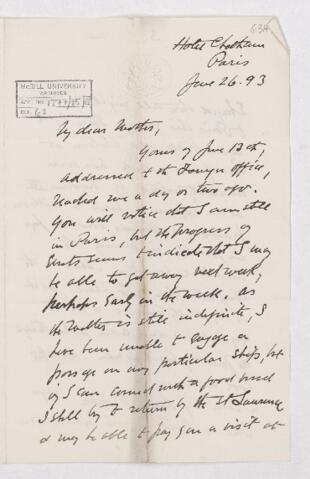 634
Hotel Chatham
Paris
June 26. 93
McGILL UNIVERSITY
ARCHIVES
ACC. NO.
REF. 62
My dear Mother,
Yours of June 12th,
addressed to the Foreign office,
reached me a day or two ago.
You will notice that I am still
in Paris, but the progress of
events seems to indicate that I may
be able to get away next week,
perhaps early in the week. As
the matter is still indefinite, I
have been unable to engage a
passage on any particular ship, but
if I can connect with a good vessel
I shall try to return by the St Lawrence
& may be able to pay you a visit at